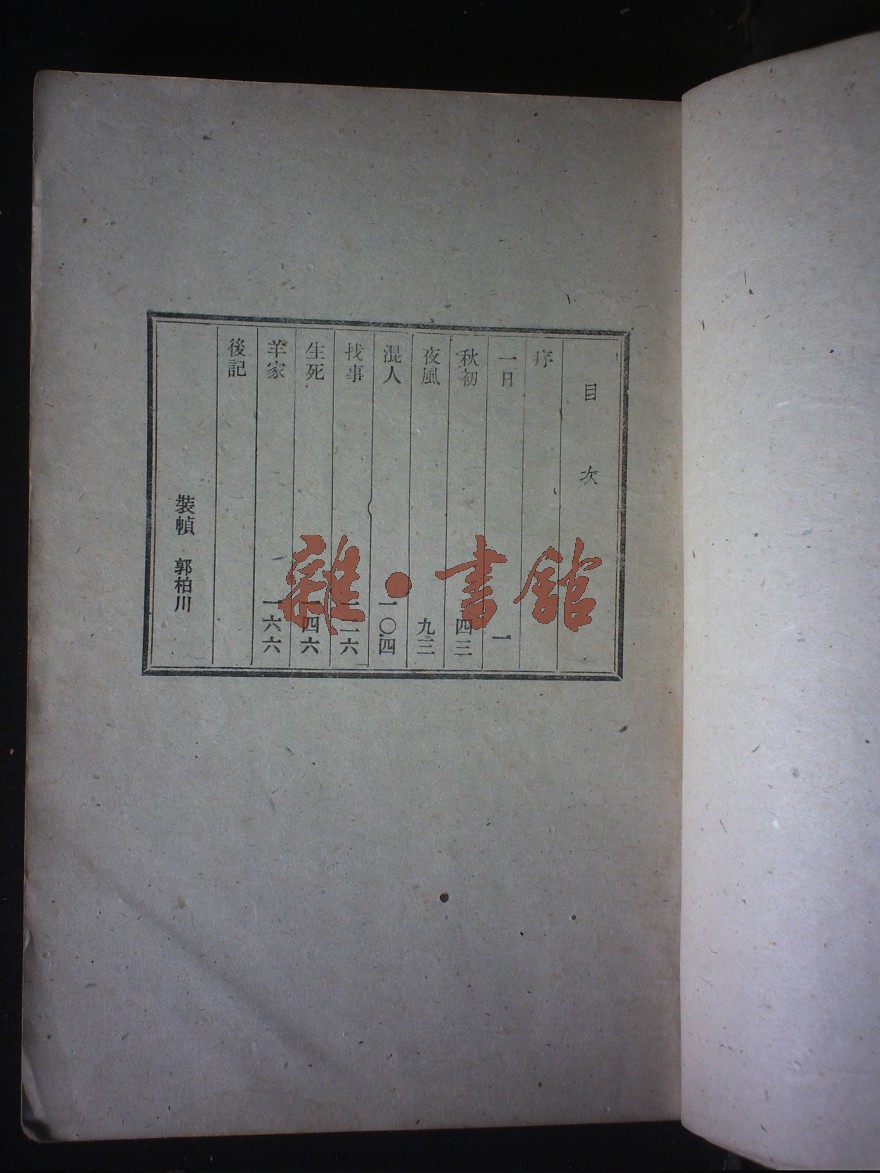 目次
序
一日 一
秋初 四三
夜風 九三
混人 一〇四
找事 一二六
生死 一四六
羊家 一六六
後記
裝幀 郭柏川
雜·書館